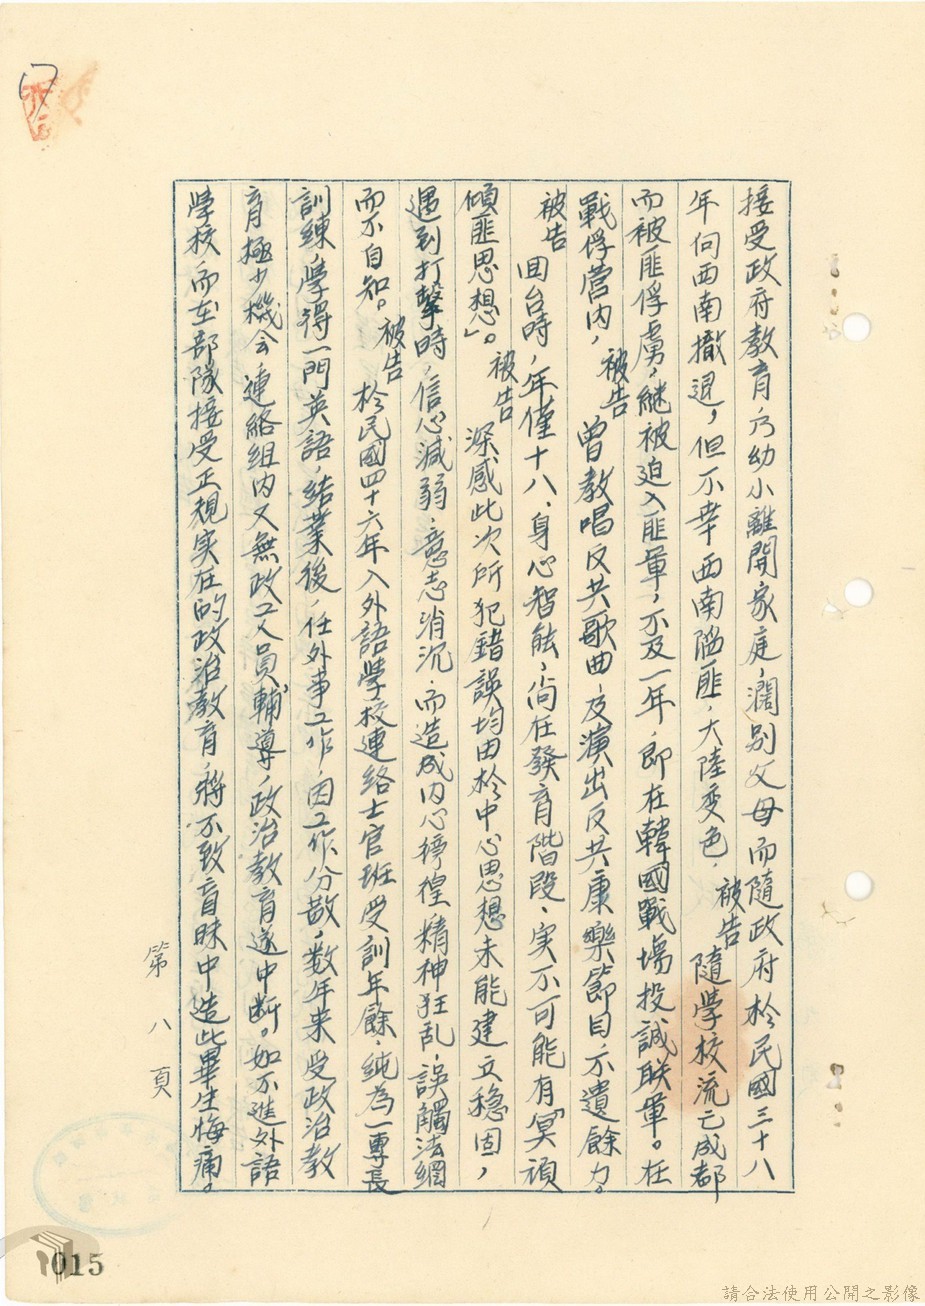 接受政府教育,乃幼小離開家庭,濶別父母而隨政府於民國三十八
年向西南撤退,但不幸西南陷匪,大陸变色,被告隨学校流亡成都
而被匪俘虜,継被迫入匪軍,不及一年,即在韓國戰場投誠联軍。在
戰俘营内,被告曾教唱反共歌曲,及演出反共康樂節目,不遺餘力。
被告回台時,年僅十八、身心智能,尚在發育階段、実不可能有「冥頑
傾匪思想」。被告深感此次所犯錯誤均由於中心思想未能建立穩固,
遇到打擊時,信心減弱,意志消沉,而造成内心徬徨,精神狂乱,誤觸法網
而不自知。被告於民國四十六年入外語學校連絡士官班受訓年餘,純為一專長
訓練,學得一門英語,結業後,任外事工作,因工作分散,数年来受政治教
育極少機会,連絡組内又無政工人員輔導,政治教育遂中断。如不進外語
學校,而在部隊接受正規実在的政治教育,將不致盲昧中造此畢生悔痛。
第八頁
015
請合法使用公開之影像